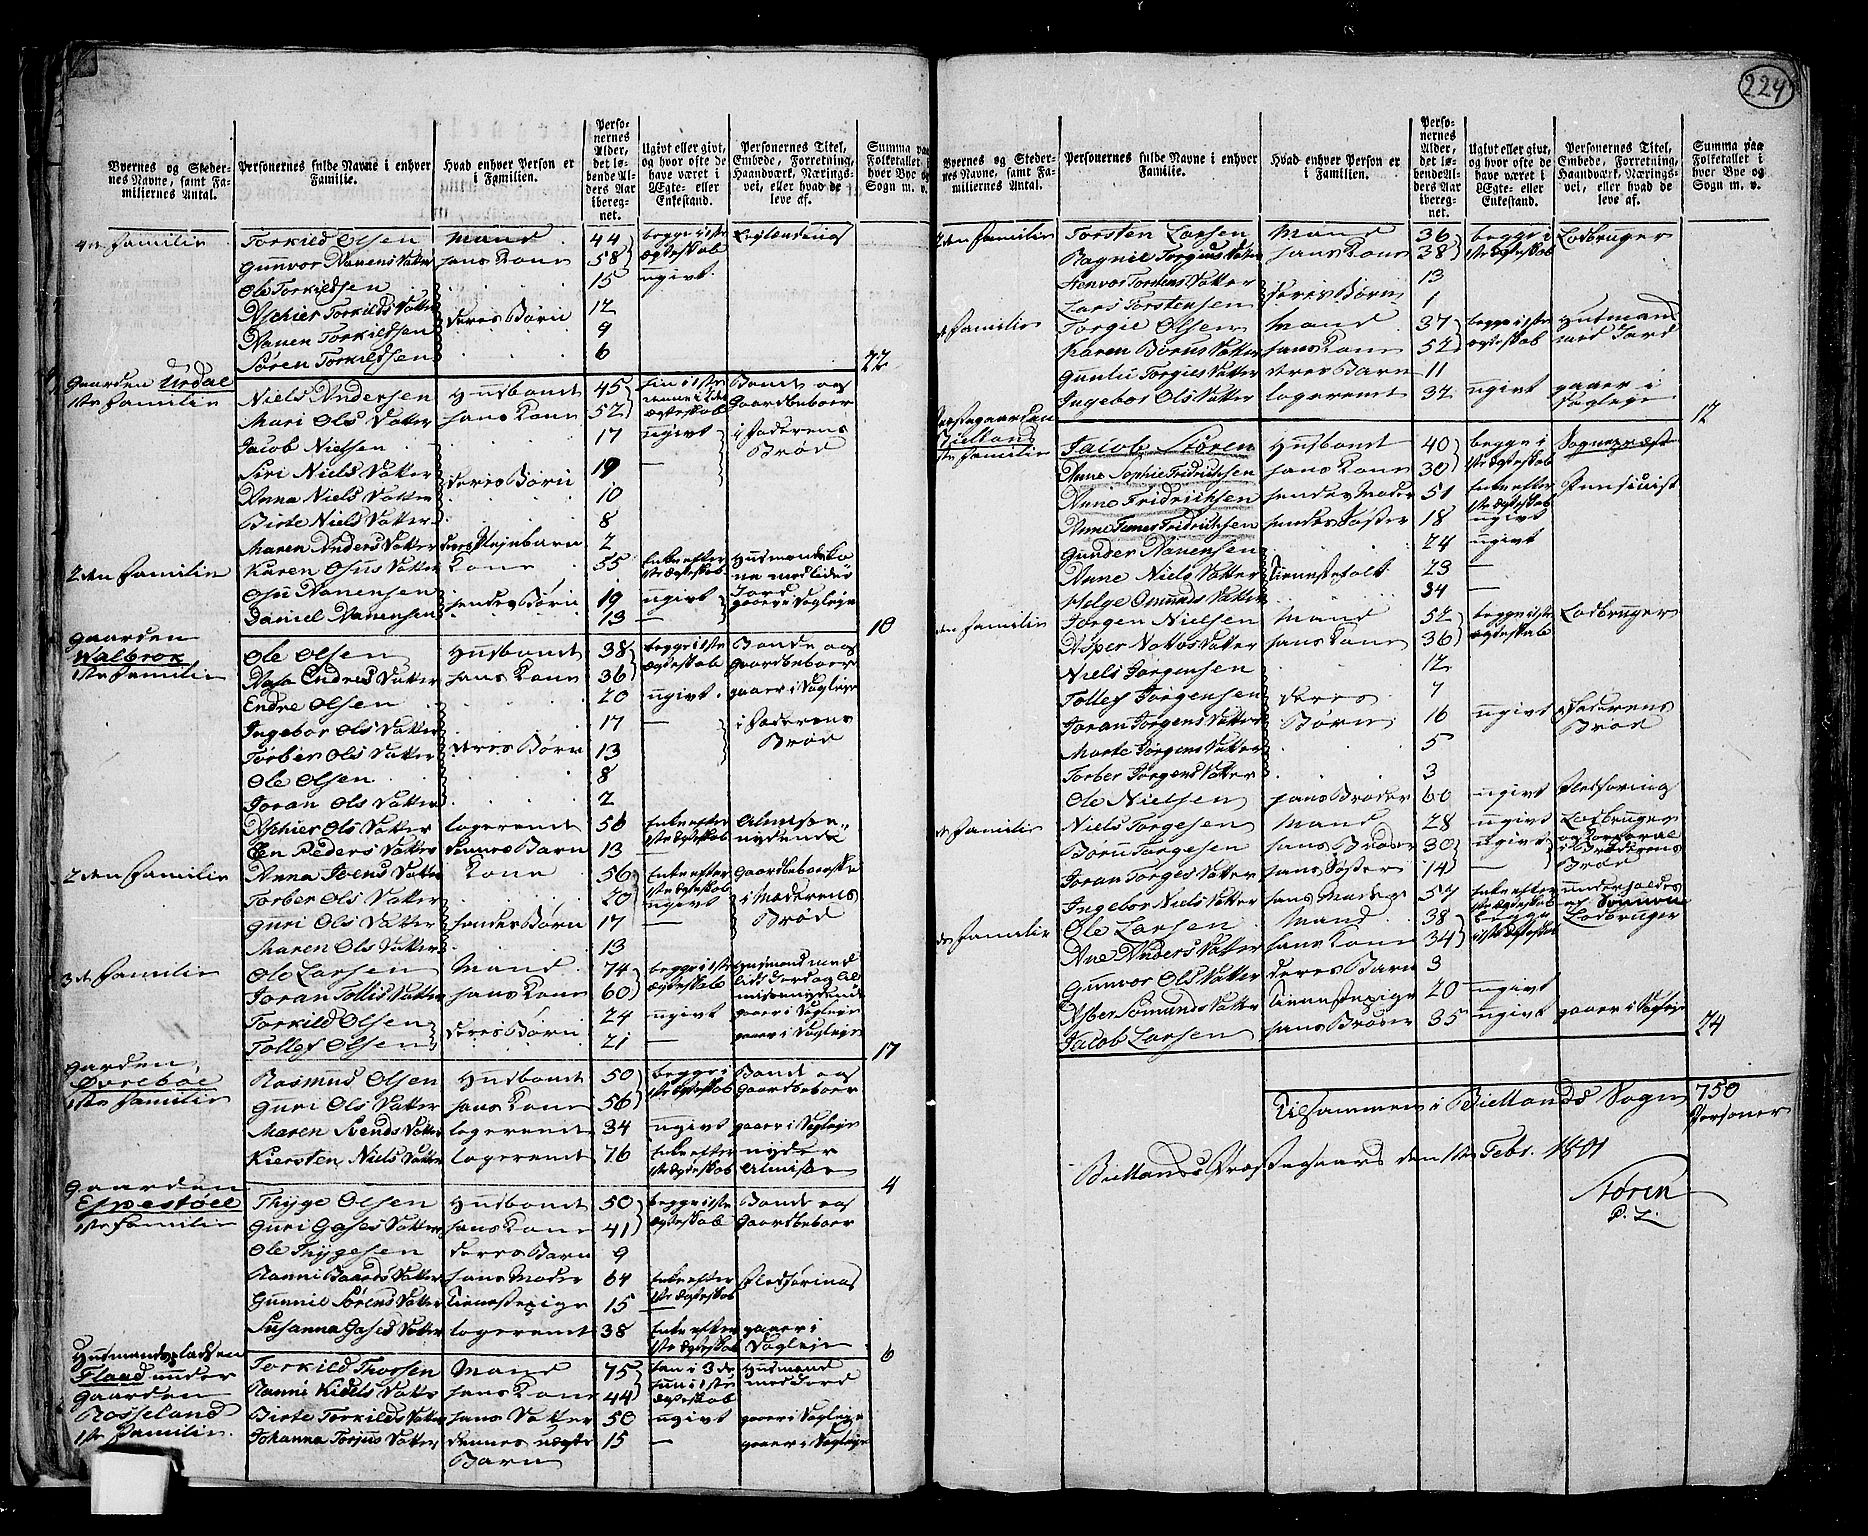 224
Byernes og Steder-
nes Navne, samt Fa-
miliernes Antal.
Personernes fulde Navne i enhver
Familie.
Hvad enhver Person er
i Familien.
Perso-
nernes
Alder,
det lø-
bende Al-
ders Aar
iberegnet.
Ugivt eller givt,
og hvor ofte de
have været i
Ægte- eller
Enkestand.
Personernes Titel,
Embede, Forretning,
Haandværk, Nærings-
vei, eller hvad de
leve af.
Summa paa
Folketallet i
hver Bye og
Sogn m. v.
4de Familie Torkild Olsen Mand 44 begge i 1ste
Gunvor Nanens Datter hans Kone 58 Ægteskab
Ole Torkildsen 15 ugivt
Aschier Torkilds Datter deres Børn 12
Nanen Torkildsen 9
Søren Torkildsen 6
22
Gaarden Urdal
1ste Familie Niels Andersen Husbonde 45 Bonde og
Mari Ols Datter hans Kone 52 Ægteskab Gaardbeboer
Jacob Nielsen 17 ugivt i Faderens
Siri Niels Datter deres Børn 19 — Brød
Anna Niels Datter 10
Birte Niels Datter 8
Maren Anders Datter deres Pleiebarn 2
2den Familie Karen Osus Datter Kone 55 Enke efter
1ste Ægteskab
Osu Nanensen hendes Børn 19 ugivt gaaer i Dagleje
Daniel Nanensen 13 —
10
Gaarden
Walbrox
1ste Familie Ole Olsen Husbonde 38 begge i 1ste Bonde og
Aasa Endres Datter hans Kone 36 Ægteskab Gaardbeboer
Endre Olsen 20 ugivt gaaer i Dagleje
Ingebor Ols Datter 17 — i Faderens
Torber Ols Datter deres Børn 13 Brød
Ole Olsen 8
Joran Ols Datter 2
Aschier Ols Datter logerende 56 Enke efter Almisse-
Peders Datter hendes Barn 13 1ste Ægteskab nydende
2den Familie Anna Joens Datter Kone 56 Enke efter Gaardbeboerske
Torber Ols Datter 20 ugivt i Moderens
Guri Ols Datter hendes Børn 17 — Brød
Maren Ols Datter 13
3de Familie Ole Larsen Mand 74 begge i 1ste Husmand med
Joran Tollis Datter hans Kone 60 Ægteskab
Torkild Olsen deres Børn 24 ugivt gaaer i Dagleje
Tollef Olsen 21 — gaaer i Dagleje
17
Gaarden
Øvreboe
1ste Familie Rasmus Olsen Husbonde 50 begge i Bonde og
Guri Ols Datter hans Kone 56 1ste Ægteskab Gaardbeboer
Maren Svends Datter logerende 34 ugivt gaaer i Dagleje
Kiersten Niels Datter logerende 76 Enke efter nyder
1ste Ægteskab Almisse
4
Gaarden
Espestøel
1ste Familie Thyge Olsen Husbonde 50 begge i 1ste Bonde og
Guri Gases Datter hans Kone 41 Ægteskab Gaardbeboer
Ole Thygesen deres Barn 9
Ranni Baards Datter hans Moder 64 Enke efter Fledføring
1ste Ægteskab
Gunnil Sørens Datter Tienestepige 15 —
Susanna Gases Datter logerende 38 Enke efter gaaer i
1ste Ægteskab Dagleje
6
Husmandspladsen
Flaad under
Gaarden
Rosseland
1ste Familie
Torkild Thorsen Mand 75 han i 3de Husmand
Ranni Kidels Datter hans Kone 44 hun i 1ste med Jord
Ægteskab
Birte Torkilds Datter hans Datter 50 ugivt gaaer i Dagleje
Johanna Torjus Datter dennes uægte 15 — gaaer i Dagleje
Barn
Byernes og Steder-
nes Navne, samt Fa-
miliernes Antal.
Personernes fulde Navne i enhver
Familie.
Hvad enhver Person er
i Familien.
Perso-
nernes
Alder,
det lø-
bende Al-
ders Aar
iberegnet.
Ugivt eller givt,
og hvor ofte de
have været i
Ægte- eller
Enkestand.
Personernes Titel,
Embede, Forretning,
Haandværk, Nærings-
vei, eller hvad de
leve af.
Summa paa
Folketallet i
hver Bye og
Sogn m. v.
2den Familie Torsten Larsen Mand 36 begge i Lodbruger
Ragnil Torgius Datter hans Kone 38 1ste Ægteskab
Henvor Torstens Datter deres Børn 13
Lars Torstensen 1
de Familie Torgie Olsen Mand 37 begge i 1ste Husmand
Karen Børns Datter hans Kone 52 Ægteskab med Jord
Gunlu Torgies Datter deres Barn 11
Ingebor Ols Datter logerende 32 ugivt gaaer i
Dagleje
12
Præstegaarden
Bielland
1ste Familie Jacob Støren Husbonde 40 begge i Sognepræst
Anne Sophie Fridrichsen hans Kone 30 1ste Ægteskab
Anne Fridrichsen hendes Moder 51 Enke efter Pensionist
1ste Ægteskab
Anne Fridrichsen hendes Søster 18 ugivt
Gunder Nanensen 24 ugivt
Anne Niels Datter Tienestefolk 23 —
Helge Omunds Datter 34 —
den Familie Jørgen Nielsen Mand 52 begge i 1ste Lodbruger
Asper Datter hans Kone 36 Ægteskab
Niels Jørgensen 12
Tollef Jørgensen deres 7
Joran Jørgens Datter Børn 16 ugivt i Faderens
Brød
Marte Jørgens Datter 5
Torber Jørgens Datter 3
Ole Nielsen hans Broder 60 ugivt Fledføring
de Familie Niels Torgesen Mand 28 ugivt Lodbruger
Børu Torgesen hans Broder 30 ugivt
Joran Torges Datter hans Søster 14 — Brød
Ingebor Niels Datter hans Moder 57 Enke efter underholdes
1ste Ægteskab af Sønnen
de Familie Ole Larsen Mand 38 begge Lodbruger
Ane Anders Datter hans Kone 34 i 1ste Ægteskab
Gunvor Ols Datter deres Barn 3
Asber Omunds Datter Tienestepige 20 ugivt
Jacob Larsen hans Broder 35 ugivt gaaer i Dagleje
24
Tilsammen i Biellands Sogn 750
Personer
Biellands Præstegaard den 1ste Febr. 1801
Støren
P. L.